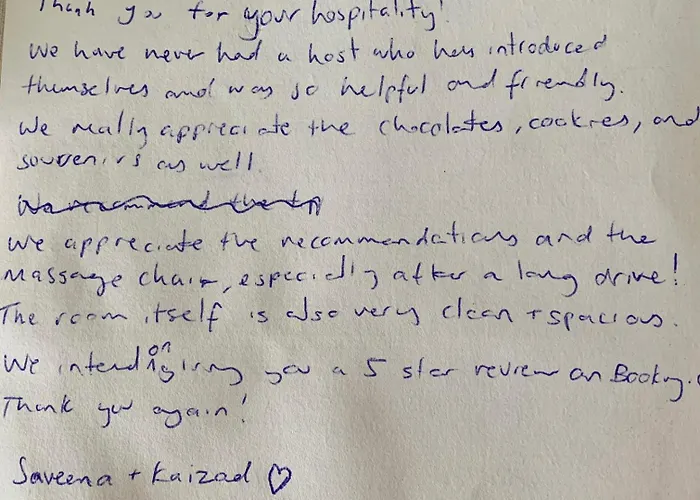 Thank you for your hospitality!
We have never had a host who has introduced
themselves and was so helpful and friendly.
We really appreciate the chocolates, cookies, and
souvenirs as well.
We recommend the
We appreciate the recommendations and the
massage chair, especially after a long drive!
The room itself is also very clean + spacious.
We intend on giving you a 5 star review on Booking.
Thank you again!
Saveena + Kaizad ♡